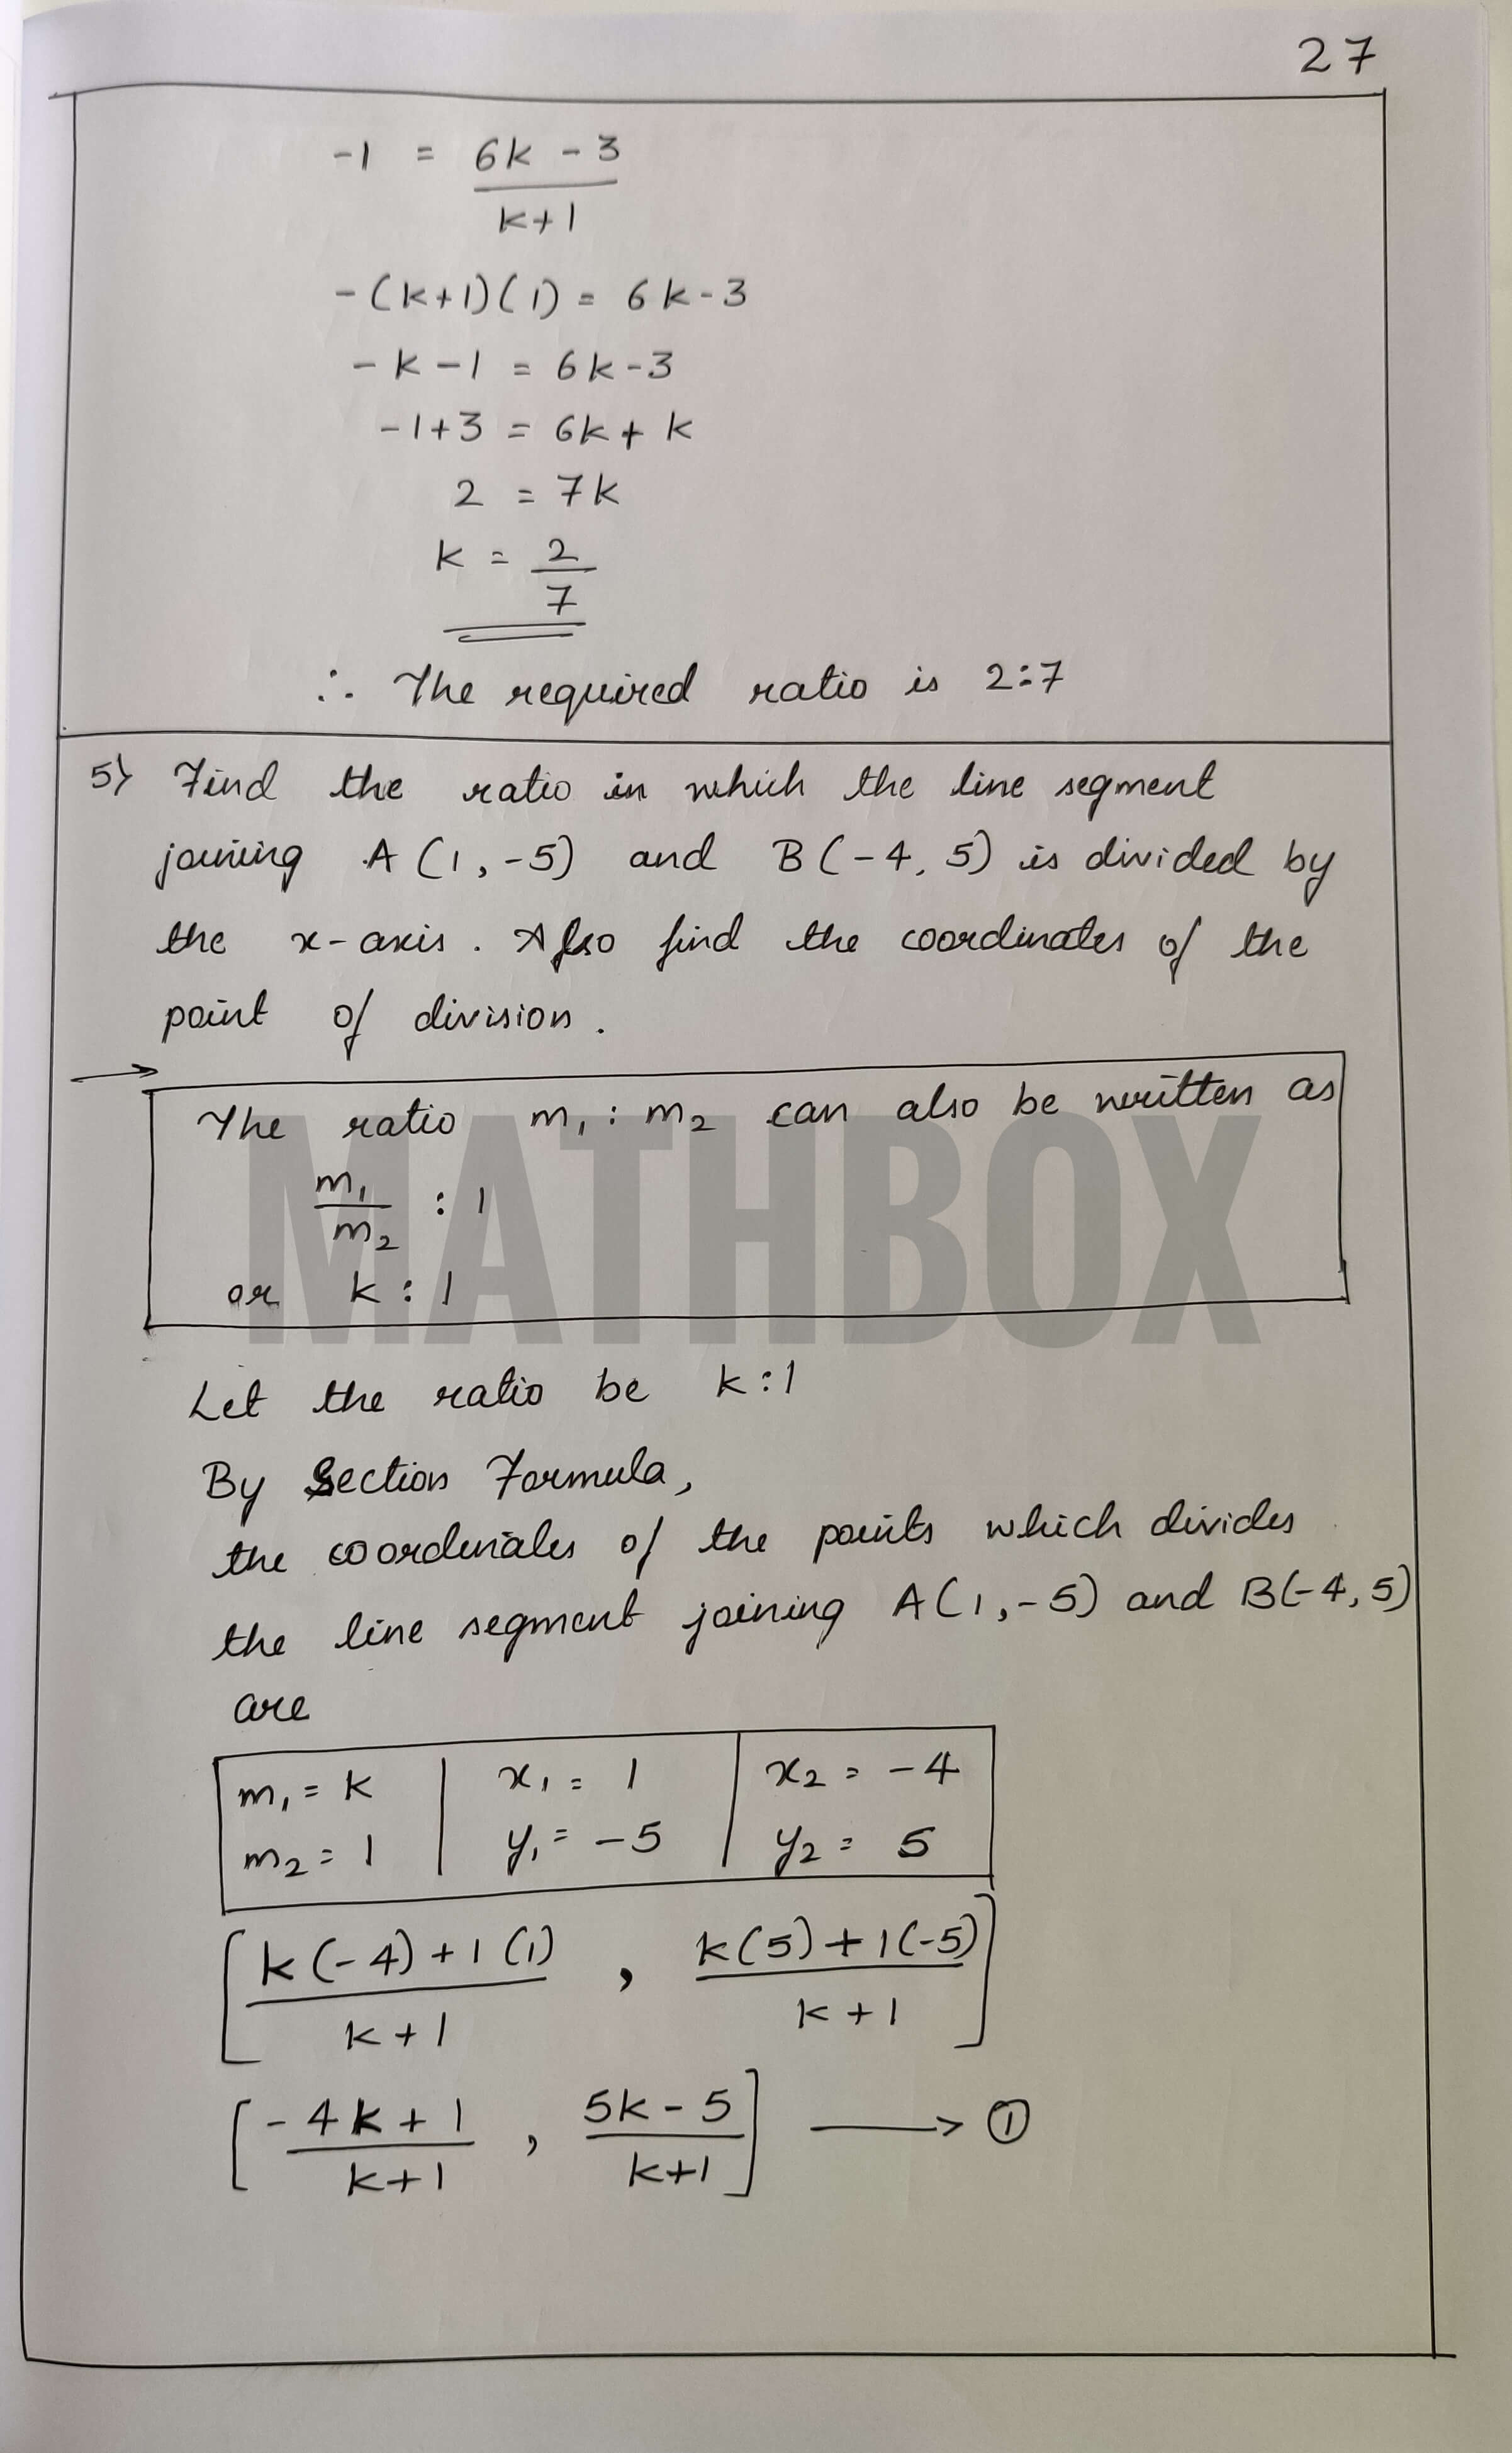 27
-1 = 6k - 3
k+1
-(k+1)(1) = 6k-3
-k-1 = 6k-3
-1+3 = 6k+k
2 = 7k
k = 2
7
∴ The required ratio is 2:7
5) Find the ratio in which the line segment
joining A(1,-5) and B(-4,5) is divided by
the x-axis. Also find the coordinates of the
point of division.
→
The ratio m₁ : m₂ can also be written as
m₁ : 1
m₂
or k : 1
MATHBOX
Let the ratio be k:1
By Section Formula,
the coordinates of the points which divides
the line segment joining A(1,-5) and B(-4,5)
are
m₁ = k | x₁ = 1 | x₂ = -4
m₂ = 1 | y₁ = -5 | y₂ = 5
[k(-4)+1(1) , k(5)+1(-5)]
k+1 k+1
[-4k+1 , 5k-5] ⟶ ①
k+1 k+1